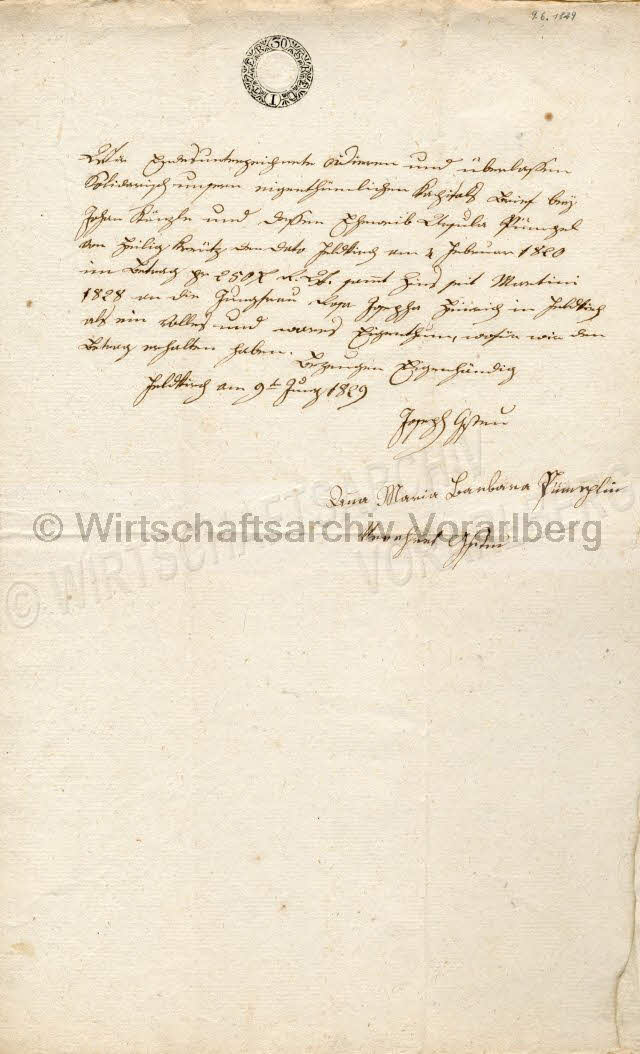 9.6.1829
30
I
Endesunterzeichnete cedieren und überlassen
Solidarisch unsern eigenthümlichen Kapitals Brief bey
Johan Künzle und dessen Eheweib Ursula
von Heilig Kreütz den dato Feldkirch am 4 Februar 1820
im Betrag pr 250 samt Zins seit Martini
1828 an die Jungfrau Josepha in Feldkirch
als ein volles und wares Eigenthum, wofür wir den
Betrag erhalten haben.
Bezeugen Eigenhändig
Feldkirch am 9t Juny 1829
Joseph Gsteu
Maria Barbara
Gsteu
© Wirtschaftsarchiv Vorarlberg
© WIRTSCHAFTSARCHIV
VORARLBERG